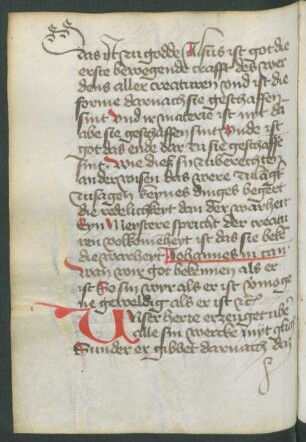 das ist zu godde Alsus ist got die
erste bewegende crafft des wer
dens aller creaturen vnd ist die
forme darnach sie geschaffen
sint vnd ir materie ist nyt da
abe sie geschaffen sint Vnde ist
got das ende dar zu sie geschaffe
sint Wie dieß zu
an der wisen das were zu lāg
zu sagen keynes dinges begert
die redelichkeit dan der warheit
Eyn Meystere spricht der creatu
ren volkomēheyt ist das sie beke
die warheyt Johannes in can
Wan wir got bekennen als er
ist So sin wyr als er ist vnd
ne geweldig als er ist
Unser herre erzeuget
alle sin wercke nyt glich
Sunder er gibbet darnach dan